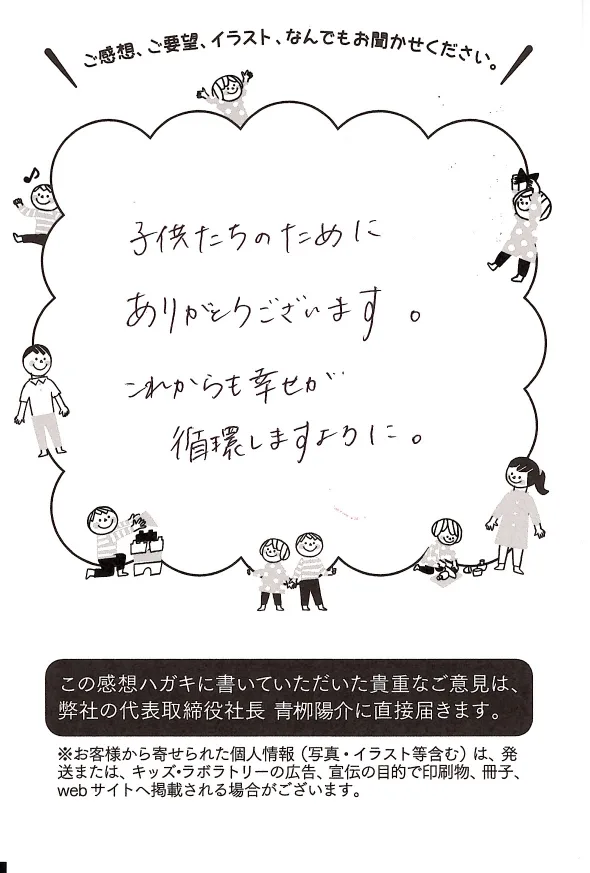 ご感想、ご要望、イラスト、なんでもお聞かせください。
子供たちのために
ありがとうございます。
これからも幸せが
循環しますように。
この感想ハガキに書いていただいた貴重なご意見は、
弊社の代表取締役社長 青柳陽介に直接届きます。
※お客様から寄せられた個人情報（写真・イラスト等含む）は、発
送または、キッズ・ラボラトリーの広告、宣伝の目的で印刷物、冊子、
webサイトへ掲載される場合がございます。